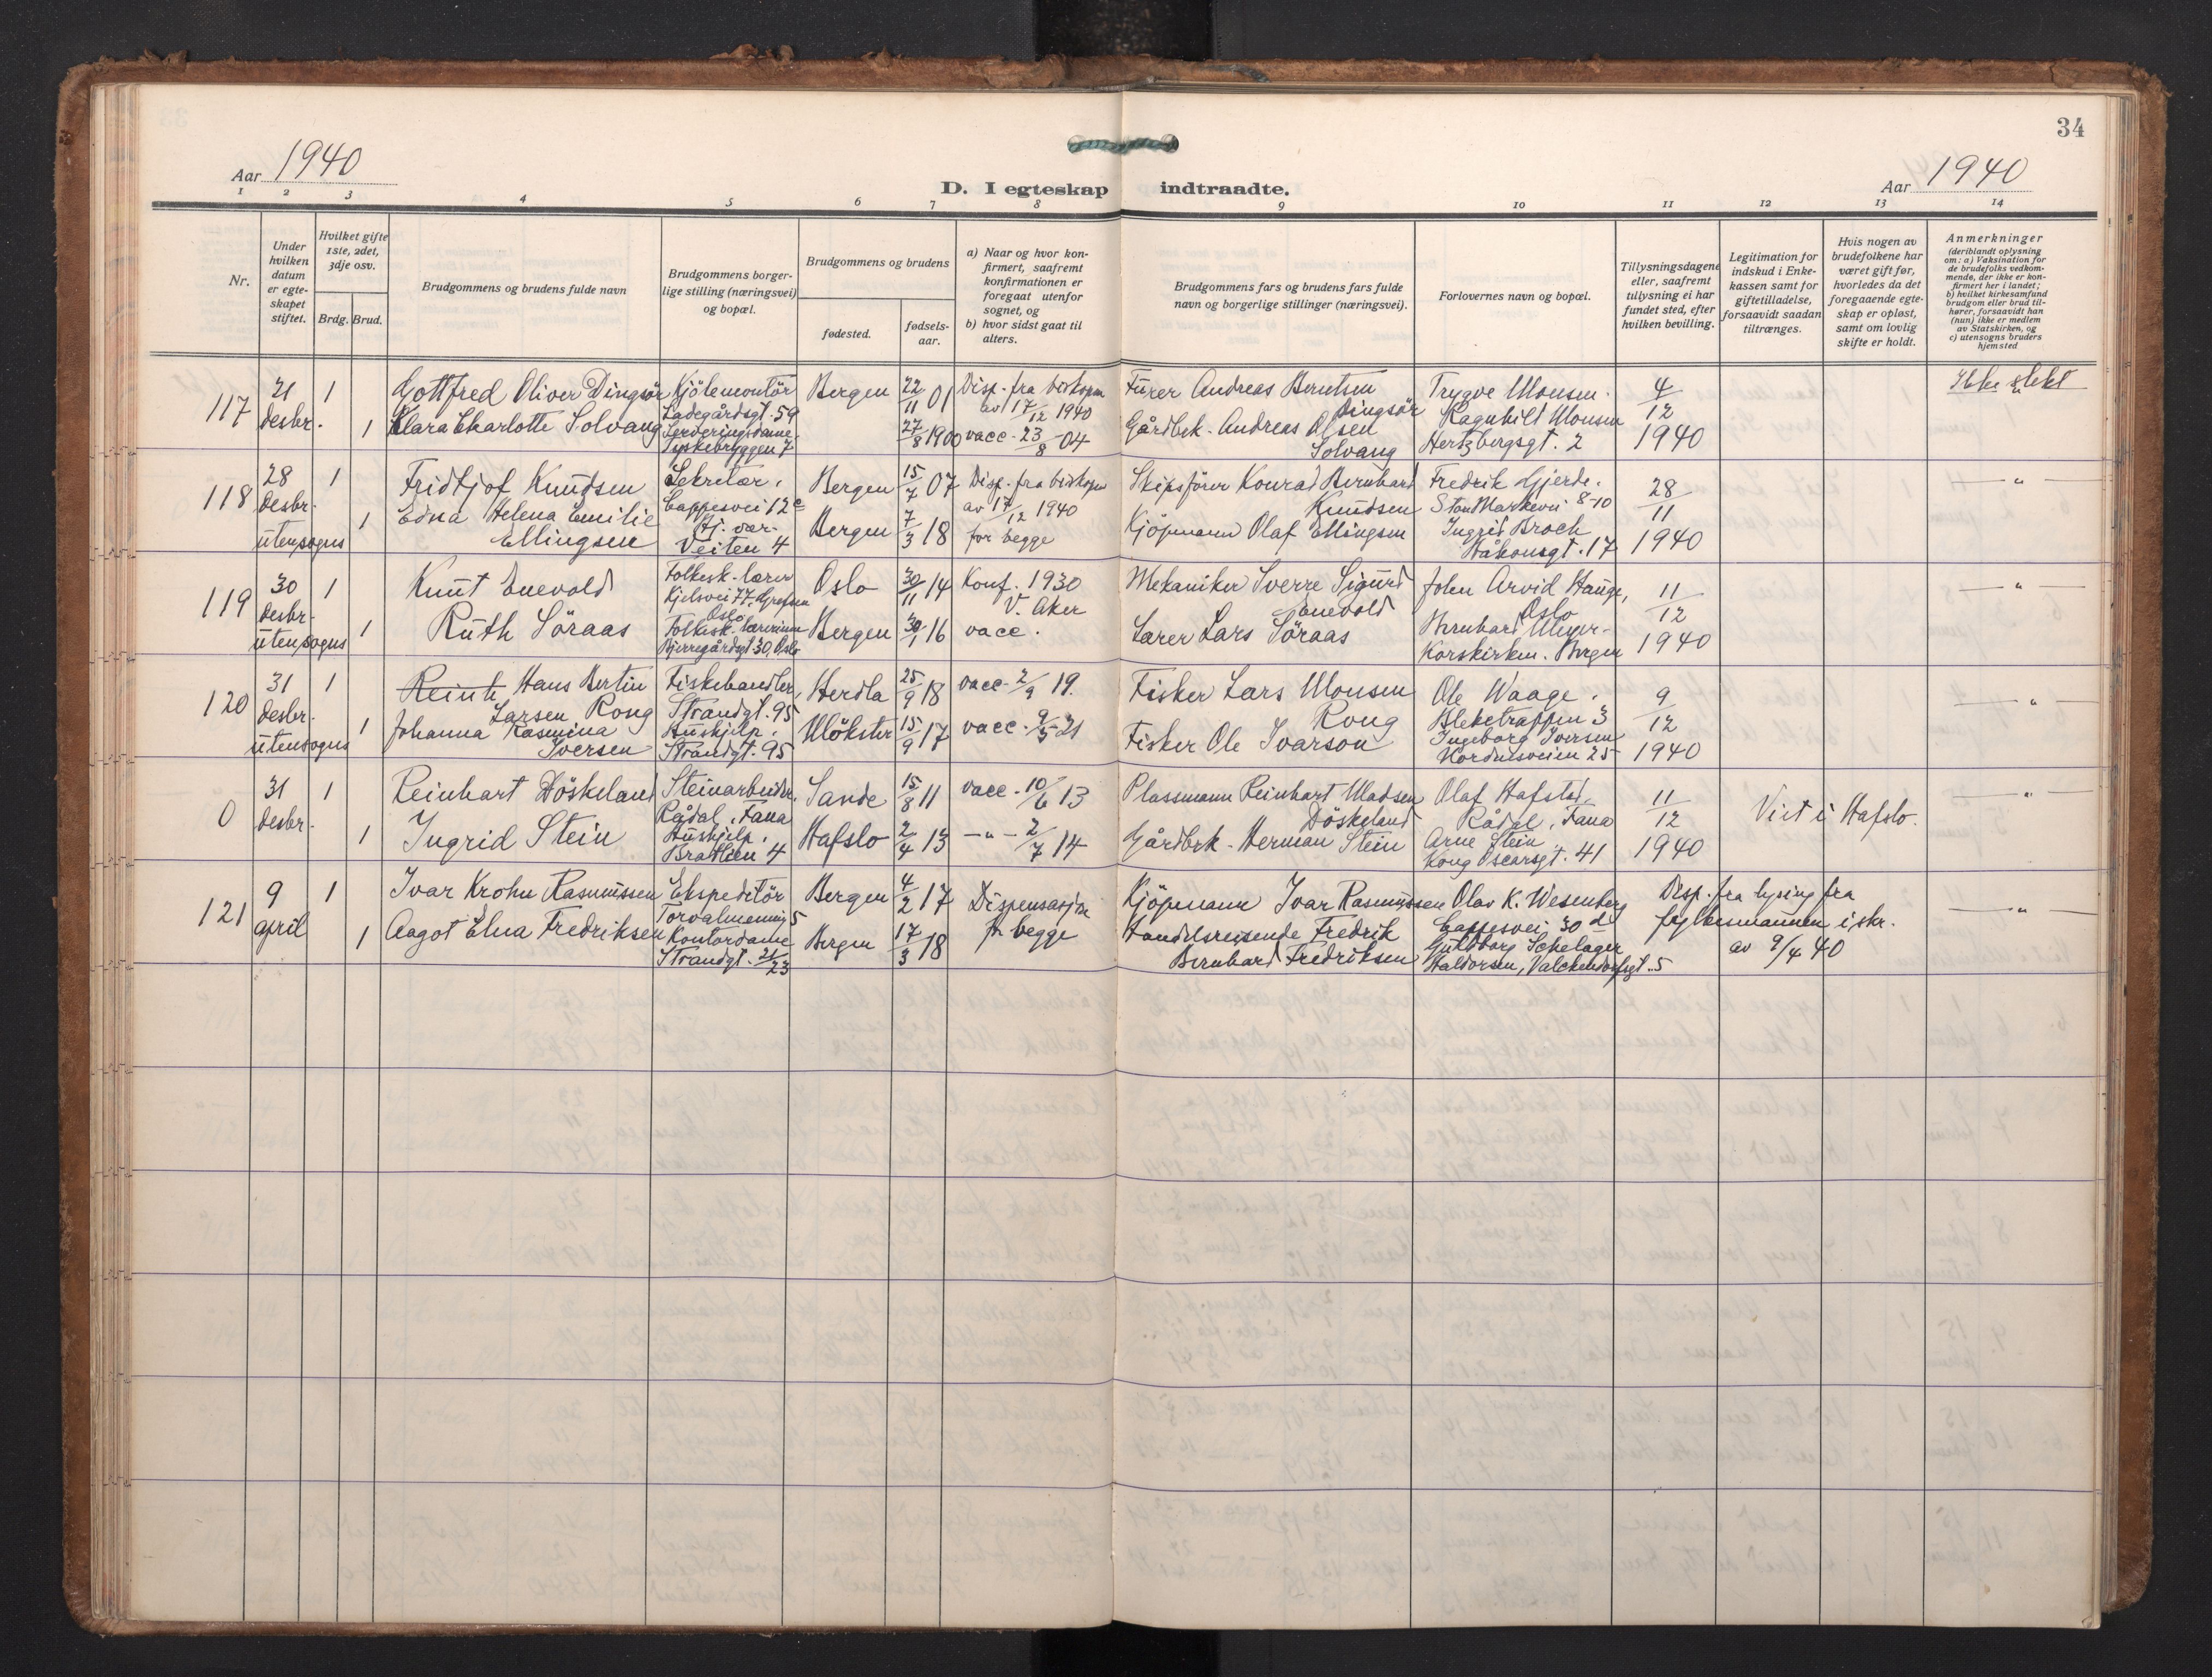 34
Aar 1940
D. I egteskap indtraadte.
Aar 1940
1 2 3 4 5 6 7 8 9 10 11 12 13 14
Nr.
Under hvilken datum er egte-skapet stiftet.
Hvilket gifte 1ste, 2det, 3dje osv.
Brdg. Brud.
Brudgommens og brudens fulde navn
Brudgommens borger-lige stilling (næringsvei) og bopæl.
Brudgommens og brudens
fødested.
fødsels-aar.
a) Naar og hvor kon-firmert, saafremt konfirmationen er foregaat utenfor sognet, og
b) hvor sidst gaat til alters.
Brudgommens fars og brudens fars fulde navn og borgerlige stillinger (næringsvei).
Forlovernes navn og bopæl.
Tillysningsdagene eller, saafremt tillysning ei har fundet sted, efter hvilken bevilling.
Legitimation for indskud i Enke-kassen samt for giftetilladelse, forsaavidt saadan tiltrænges.
Hvis nogen av brudefolkene har været gift før, hvorledes da det foregaaende egte-skap er opløst, samt om lovlig skifte er holdt.
Anmerkninger (deriblandt oplysning om: a) Vaksination for de brudefolks vedkom-mende, der ikke er kon-firmert her i landet; b) hvilket kirkesamfund brudgom eller brud til-hører, forsaavidt han (hun) ikke er medlem av Statskirken, og c) utensogns bruders hjemsted
117
21 desbr.
1
1
Gottfred Oliver Dingsör
Klara Charlotte Solvang
Kjölemontör
Ladegårdsgt. 59
Serveringsdame
Tyskebryggen 7
Bergen
22/11 01
27/8 1900
Disp. fra biskopen
av 17/12 1940
vacc. 23/8 - 04
Fürer Andreas Berntsen
Dingsör
Gårdbrk. Andreas Olsen
Solvang
Trygve Monsen.
Ragnhild Monsen
Hertzbergsgt. 2
4/12
1940
Ikke slekt
118
28 desbr.
utensogns
1
1
Fridtjof Knudsen
Edna Helena Emilie
Ellingsen
Sekretær,
Cappesvei 12c
Hj. vær.
Veiten 4
Bergen
Bergen
15/7 07
7/3 18
Disp. fra biskopen
av 17/12 1940
for begge
Skipsförer Konrad Bernhard
Knudsen
Kjöpmann Olaf Ellingsen
Fredrik Gjerde.
Store Markevei 8-10
Ingrid Broch
Håkonsgt. 17
28/11
1940
— " —
119
30 desbr.
utensogns
1
1
Knut Enevold
Ruth Söraas
Folkesk. lærer
Kjelsvei 77, Grefsen
Oslo
Folkesk. lærerinne
Bjerregårdsgt. 30, Oslo
Oslo
Bergen
30/11 14
30/1 16
Konf. 1930
V. Aker
vacc.
Mekaniker Sverre Sigurd
Enevold
Lærer Lars Söraas
John Arvid Hauge,
Oslo
Bernhard Meyer-
Korskirken. Bergen
11/12
1940
— " —
120
31 desbr.
utensogns
1
1
Reinh, Hans Bertin
Larsen Rong
Johanna Rasmina
Iversen
Fiskehandler,
Strandgt. 95
Huskjelp,
Strandgt. 95
Herdla
Mökster
25/9 18
15/9 17
vacc. 2/9 19.
vacc. 9/5 - 21
Fisker Lars Monsen
Rong
Fisker Ole Ivarson
Ole Waage,
Bleketrappen 3
Ingeborg Iversen
Nordnesveien 25
9/12
1940
— " —
0
31 desbr.
1
1
Reinhart Döskeland
Ingrid Stein
Steinarbeider,
Rådal, Fana
Huskjelp,
Bratlien 4
Sande
Hafslo
15/8 11
2/4 13
vacc. 10/6 13
— " — 2/7 14
Plassmann Reinhart Madsen
Döskeland
Gårdbrk. Herman Stein
Olaf Hafstad,
Rådal, Fana
Arne Stein
Kong Oscarsgt. 41
11/12
1940
Viet i Hafslo.
— " —
121
9 april
1
1
Ivar Krohn Rasmussen
Aagot Elna Fredriksen
Ekspeditör
Torvalmenning 5
Kontordame
Strandgt. 21/23
Bergen
Bergen
4/2 17
17/3 18
Dispensasjon
for begge
Kjöpmann Ivar Rasmussen
Handelsreisende Fredrik
Bernhard Fredriksen
Olav K. Wesenberg
Cappesvei 30d
Guldborg Schelager
Haldorsen, Valckendorfsgt. 5
Disp. fra lysing fra
fylkesmannen i skr.
av 9/4 40
— " —